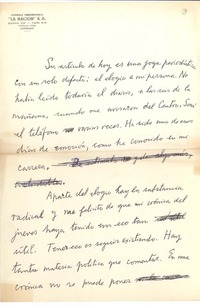 "LA NACION" S. A.
Su artículo de hoy es una joya periodística
con un solo defecto: el elogio a mi persona. No
había leído todavía el diario, a las seis de la
mañana, cuando me avisaron del Centro. Sonó
el teléfono varias veces. Ha sido uno de mis
días de emoción, como he conocido en mi
carrera.
Aparte del elogio hay la substancia
radical y me felicito de que mi crónica del
jueves haya tenido un eco tan
útil. Tenerceo es seguir existiendo. Hay
tanta materia política que comentar. En una
crónica no se puede poner